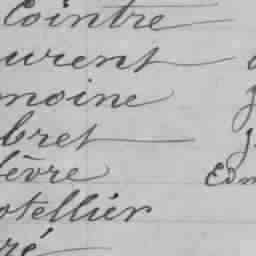 Cointre
urent
moine
bret
fèvre Edm
otellier
ré